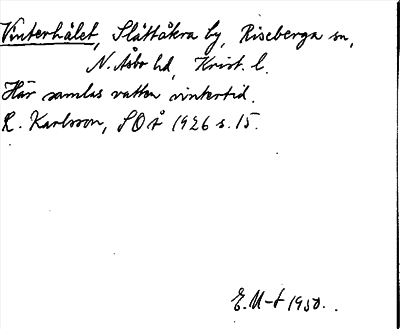 Vinterhålet, Slättåkra by, Riseberga sn,
N. Åsbo hd, Krist. l.
Här samlas vatten vintertid.
R. Karlsson, SOÅ 1926 s. 15.
E.M-t 1950.